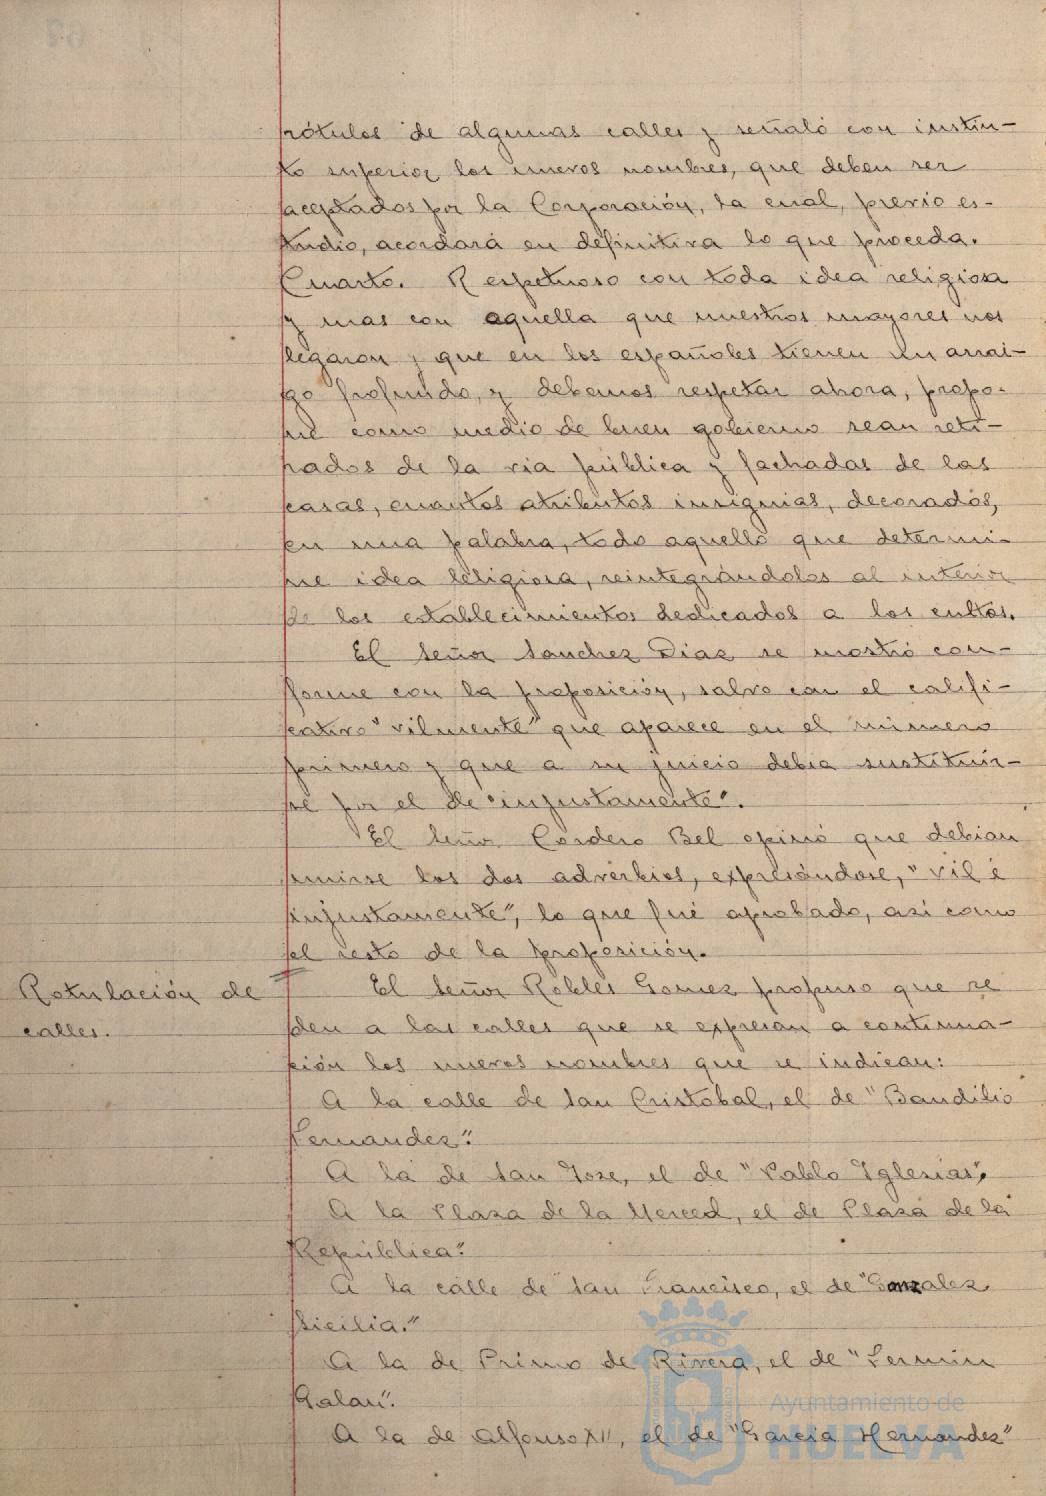 rótulos de algunas calles y señaló con instin-
to superior los nuevos nombres, que deben ser
aceptados por la Corporación, la cual, previo es-
tudio, acordará en definitiva lo que proceda.
Cuarto. Respetuoso con toda idea religiosa
y mas con aquella que nuestros mayores nos
legaron y que en los españoles tienen un arrai-
go profundo, y debemos respetar ahora, propo-
ne como medio de buen gobierno sean reti-
rados de la via pública y fachadas de las
casas, cuantos atributos insignias, decorados,
en una palabra, todo aquello que determi-
ne idea religiosa, reintegrándolos al interior
de los establecimientos dedicados a los cultos.
El señor Sanchez Diaz se mostró con-
forme con la proposición, salvo con el califi-
cativo "vilmente" que aparece en el número
primero y que a su juicio debia sustituir-
se por el de "injustamente".
El señor Cordero Bel opinó que debian
unirse los dos advérbios, expresándose, "vil é
injustamente", lo que fué aprobado, asi como
el resto de la proposición.
Rotulación de
calles.
El señor Robles Gomez propuso que se
den a las calles que se expresan a continua-
ción los nuevos nombres que se indican:
A la calle de San Cristobal, el de "Baudilio
Fernandez".
A la de San Jose, el de "Pablo Iglesias",
A la Plaza de la Merced, el de Plaza de la
República".
A la calle de San Francisco, el de "Gonzalez
Sicilia."
A la de Primo de Rivera, el de "Fermin
Galan".
A la de Alfonso XII, el de "Garcia Hernandez"
Ayuntamiento de
HUELVA